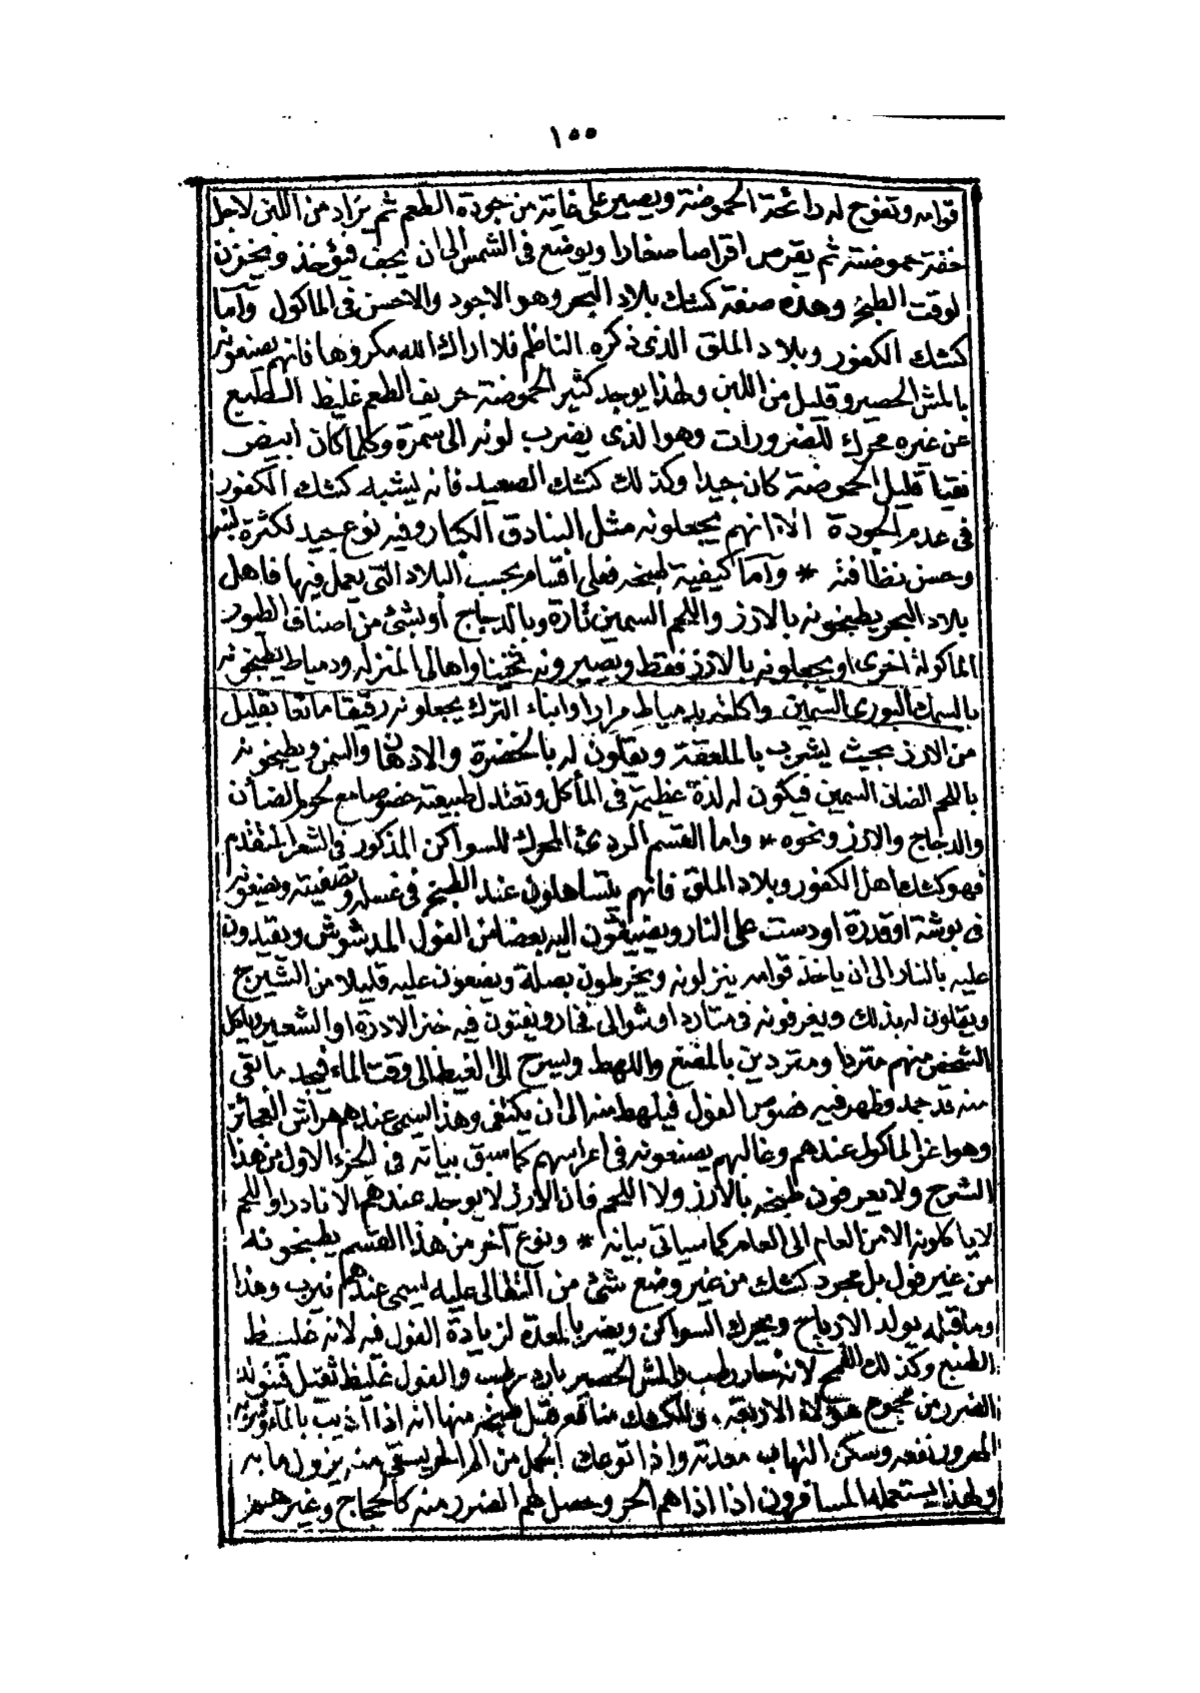 ١٥٥
قوامه وتفوح له رائحة الحموضة ويصير على غاية من جودة الطعم ثم يزاد من اللبن لاجل
خفة حموضته ثم يقرص اقراصا صغارا ويوضع فى الشمس الى ان يجف فيؤخذ ويخزن
لوقت الطبخ وهذه صفة كشك بلاد البحر وهو الاجود والاحسن فى الماكول وآما
كشك الكفور وبلاد الملق الذى ذكره الناظم فلا اراك الله مكروها فانهم يصنعونه
بالمش الحصير وقليل من اللبن ولهذا يوجد كثير الحموضة حريف الطعم غليظ الطبع
عن غيره محرك للضرورات وهو الذى يضرب لونه الى سمرة وكلما كان ابيض
نقيا قليل الحموضة كان جيدا وكذلك كشك الصعيد فانه يشبه كشك الكفور
فى عدم الجودة الا انهم يجعلونه مثل البنادق الكبار وفيه نوع جيد لكثرة لبنه
وحسن نظافته * وآما كيفية طبخه فعلى اقسام بحسب البلاد التى يعمل فيها فاهل
بلاد البحر يطبخونه بالارز واللحم السمين تارة وبالدجاج أو بشئ من اصناف الطيور
الماكولة اخرى او يجعلونه بالارز فقط ويصيرونه ثخينا واهالى المنزله ودمياط يطبخونه
بالسمك البورى السمين واكلته بدمياط مرارا وابناء الترك يجعلونه رقيقا مائعا بقليل
من الارز بحيث يشرب بالملعقة ويقلون له بالخضرة والادهان والسمن ويطبخونه
باللحم الضانى السمين فيكون له لذة عظيمة فى المأكل وتعتدل طبيعته خصوصا مع لحوم الضأن
والدجاج والارز ونحوه * واما القسم الردئ المحرك للسواكن المذكور فى الشعر المتقدم
فهو كشك اهل الكفور وبلاد الملق فانهم يتساهلون عند الطبخ فى غسله وتصفيته ويضعونه
فى بوشة او قدرة او دست على النار ويضيفون اليه بعضا من الفول المدشوش ويقيدون
عليه بالنار الى ان ياخذ قوامه ينزلونه ويخرطون بصلة ويضعون عليه قليلا من الشيرج
ويقلون له بذلك ويغرفونه فى متارد او شوالى فخار ويفتون فيه خبز الادرة او الشعير وياكل
الشخص منهم متردا ومتردين بالمضغ واللهط ويسرح الى الغيط الى وقت الماء فيجد ما بقى
منه قد جمد وظهر فيه فصوص الفول فيلهط منه الى ان يكتفى وهذا السمى عندهم هراش العجائز
وهو اعز الماكول عندهم وغالبهم يصنعونه فى اعراسهم كما سبق بيانه فى الجزء الاول من هذا
الشرح ولا يعرفون طبخه بالارز ولا اللحم فان الارز لا يوجد عندهم الا نادرا واللحم
لا ياكلونه الا من العام الى العام كما سياتى بيانه * ونوع آخر من هذا القسم يطبخونه
من غير فول بل مجرد كشك من غير وضع شئ من التقالى عليه يسمى عندهم نيرب وهذا
وما قبله يولد الارياح ويحرك السواكن ويضر بالمعدة لزيادة الفول فيه لانه غليظ
الطبع وكذلك القمح لانه حار رطب والمش الحصير بارد رطب والفول غليظ ثقيل فيتولد
الضرر من مجموع هؤلاء الاربعة وللكشك منافع قبل طبخه منها انه اذا اذيب بالماء وشربه
المحرور نفعه وسكن التهاب معدته واذا توعك الجمل من الم الحر يسقى منه يزول ما به
ولهذا يستعمله المسافرون اذا اذاهم الحر وحصل لهم الضرر منه كالحجاج وغيرهم